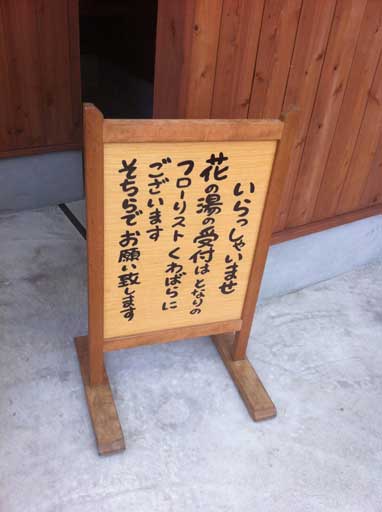 いらっしゃいませ
花の湯の受付はとなりの
フローリストくわばらに
ございます
そちらでお願い致します